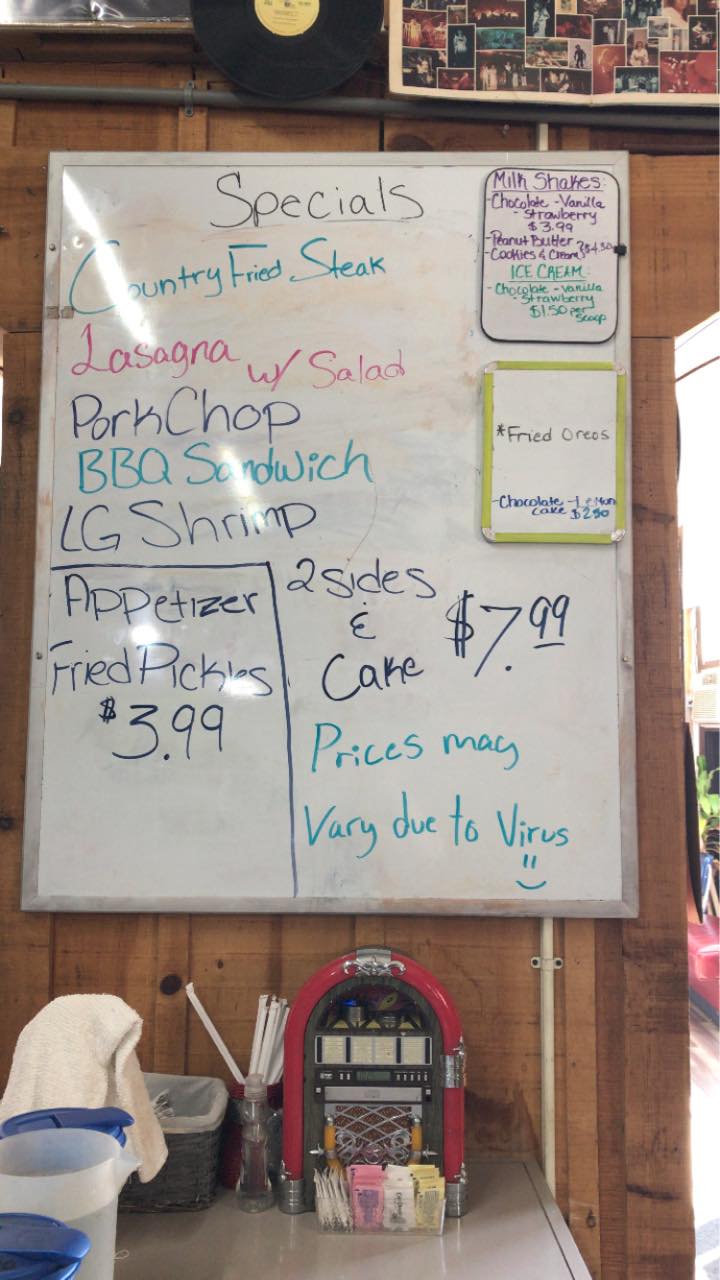 Specials
Country Fried Steak
Lasagna w/ Salad
Pork Chop
BBQ Sandwich
LG Shrimp
Appetizer
Fried Pickles
$3.99
2 sides
&
Cake
$7.99
Prices may
Vary due to Virus
Milk Shakes:
-Chocolate -Vanilla
-Strawberry
$3.99
-Peanut Butter
-Cookies & Cream $4.50
ICE CREAM:
-Chocolate -Vanilla
-Strawberry
$1.50 per
scoop
*Fried Oreos
-Chocolate -Lemon
cake $2.50